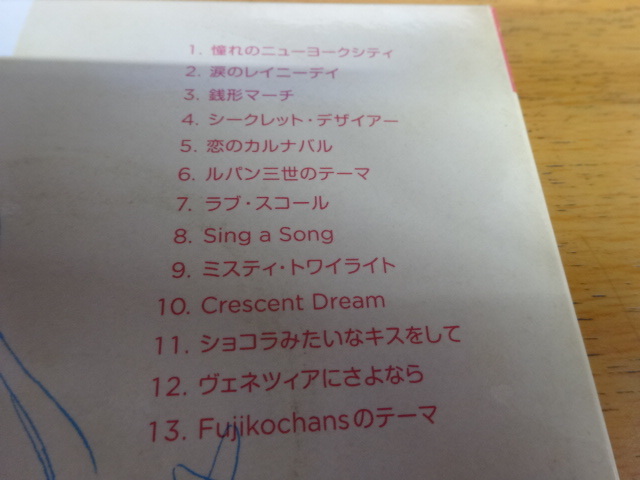 1. 憧れのニューヨークシティ
2. 涙のレイニーデイ
3. 銭形マーチ
4. シークレット・デザイアー
5. 恋のカルナバル
6. ルパン三世のテーマ
7. ラブ・スコール
8. Sing a Song
9. ミスティ・トワイライト
10. Crescent Dream
11. ショコラみたいなキスをして
12. ヴェネツィアにさよなら
13. Fujikochansのテーマ